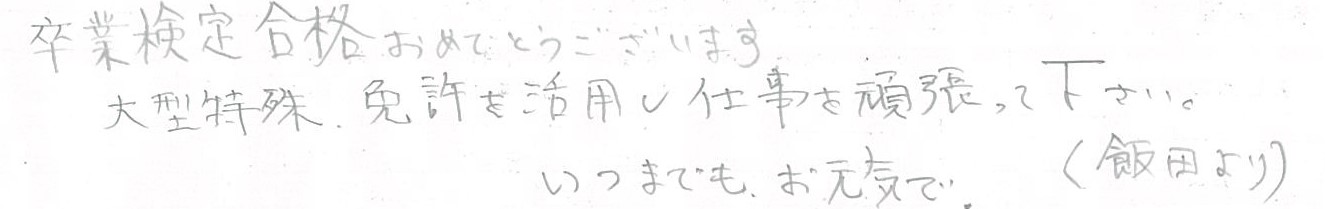 卒業検定合格おめでとうございます
大型特殊.免許を活用し仕事を頑張って下さい。
いつまでも、お元気で.
(飯田より)